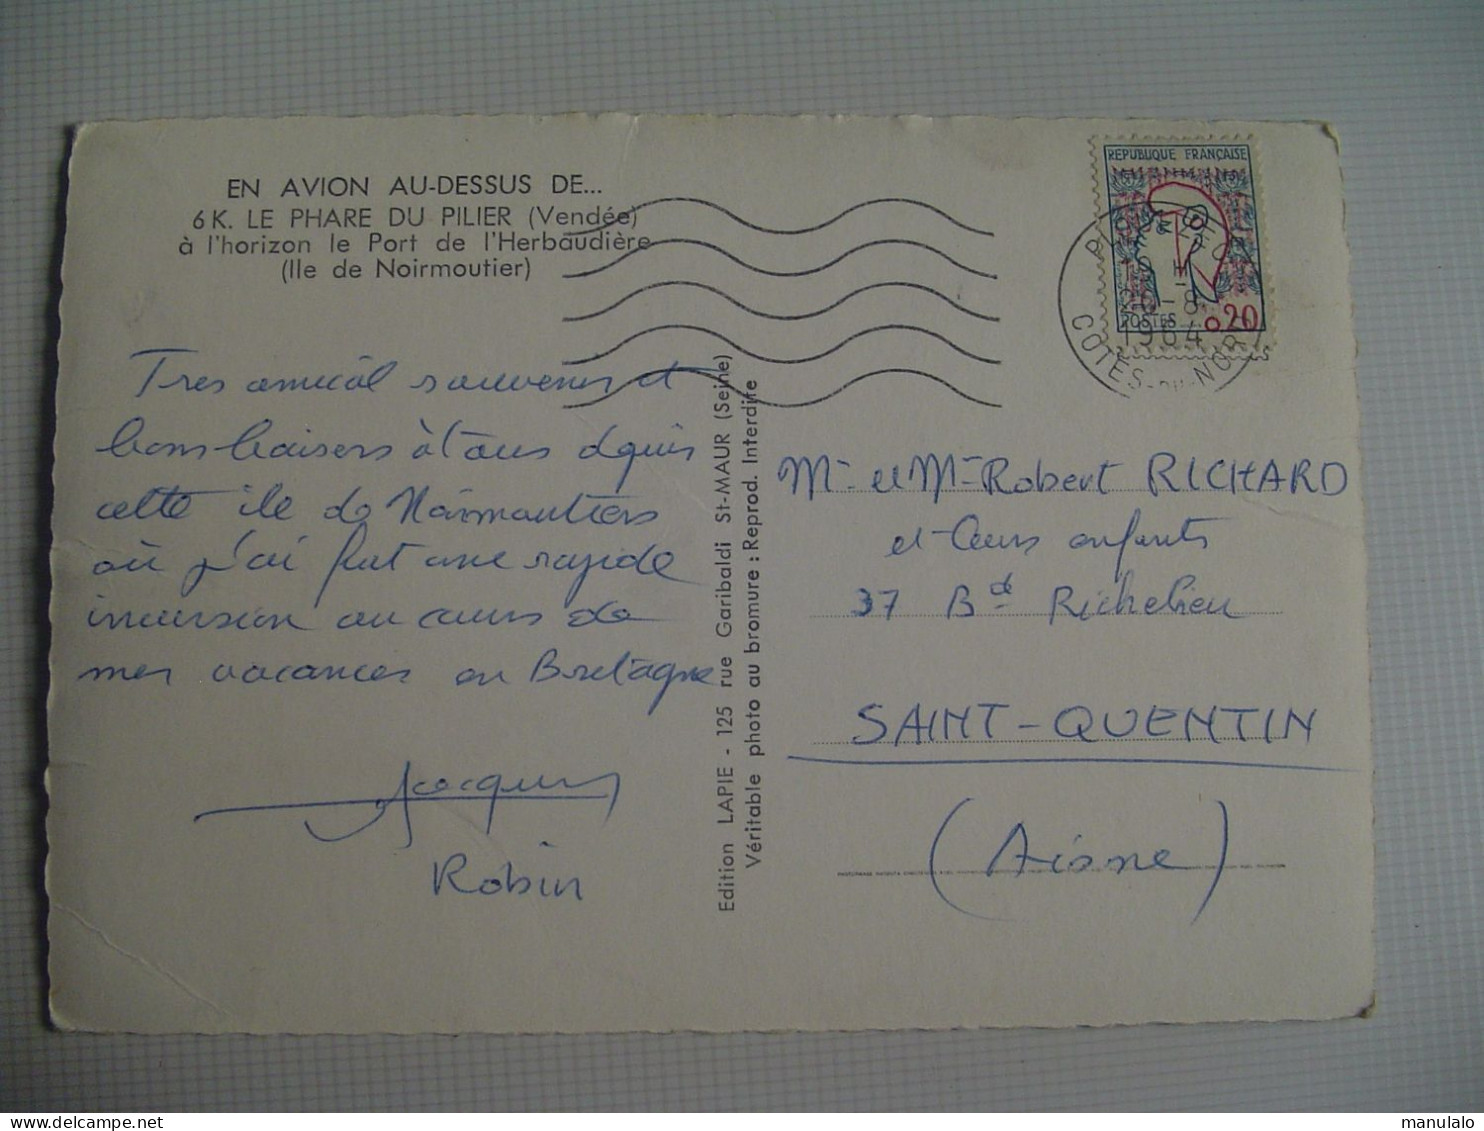 EN AVION AU-DESSUS DE...
6 K. LE PHARE DU PILIER (Vendée)
à l'horizon le Port de l'Herbaudière
(Ile de Noirmoutier)
Très amical souvenir et
bons baisers à tous depuis
cette ile de Noirmoutiers
où j'ai fait une rapide
incursion au cours de
mes vacances en Bretagne
Jacques
Robin
Edition LAPIE - 125 rue Garibaldi St-MAUR (Seine)
Véritable photo au bromure : Reprod. Interdite
REPUBLIQUE FRANÇAISE
POSTES 0,20
26-8
1964
COTES-DU-NORD
Mr et Mme Robert RICHARD
et leurs enfants
37 Bd Richelieu
SAINT-QUENTIN
(Aisne)
manulalo